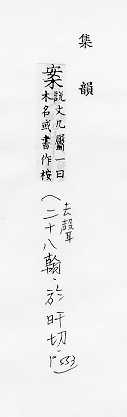 集韻
案
說文几屬一曰
木名或書作桉
(去聲
二十八翰．於旰切．P553)